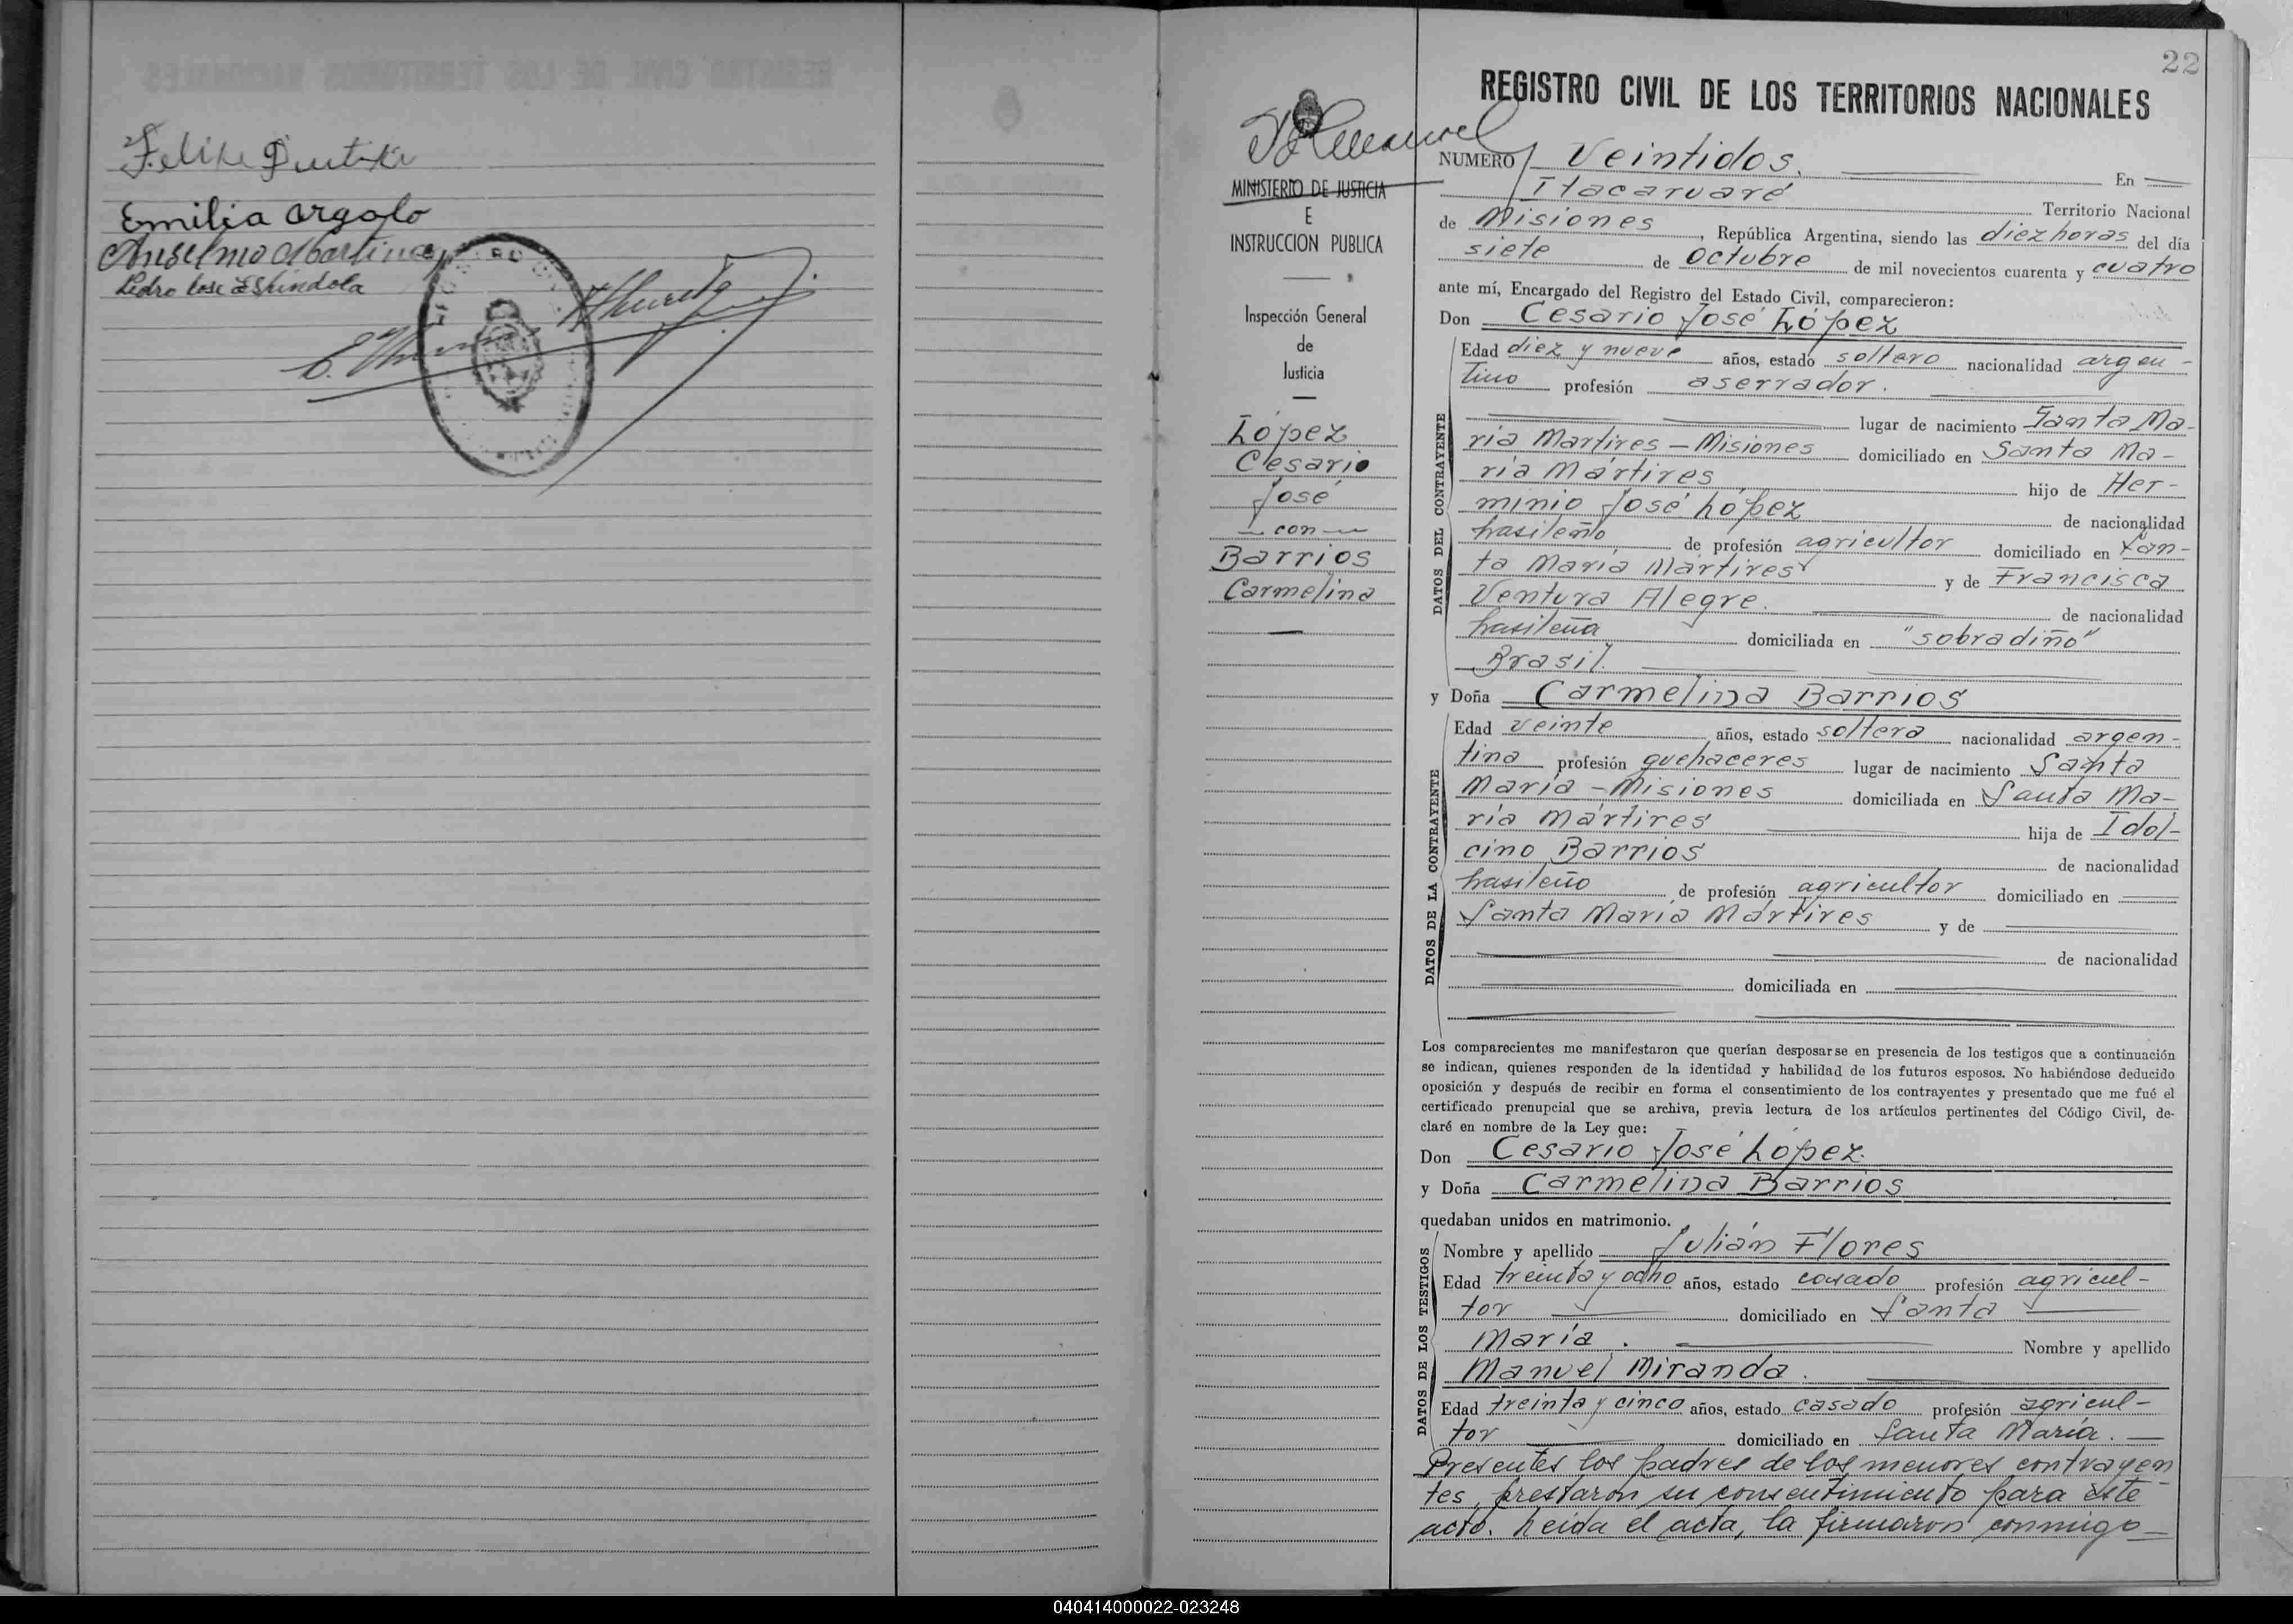 Emilia Argalo
Anselmo Martinez
Pedro Jose Eshindola
22
REGISTRO CIVIL DE LOS TERRITORIOS NACIONALES
MINISTERIO DE JUSTICIA
E
INSTRUCCION PUBLICA
Inspección General
de
Justicia
López
Cesario
José
— con —
Barrios
Carmelina
NUMERO Veintidos. En
Itacaruaré Territorio Nacional
de Misiones, República Argentina, siendo las diez horas del día
siete de Octubre de mil novecientos cuarenta y cuatro
ante mí, Encargado del Registro del Estado Civil, comparecieron:
Don Cesario José López
DATOS DEL CONTRAYENTE
Edad diez y nueve años, estado soltero nacionalidad argen-
tino profesión aserrador.
lugar de nacimiento Santa Ma-
ria Martires - Misiones domiciliado en Santa Ma-
ria Mártires hijo de Her-
minio José López de nacionalidad
brasileño de profesión agricultor domiciliado en San-
ta María Mártires y de Francisca
Ventura Alegre. de nacionalidad
brasileña domiciliada en "sobradiño"
Brasil.
y Doña Carmelina Barrios
DATOS DE LA CONTRAYENTE
Edad veinte años, estado soltera nacionalidad argen-
tina profesión quehaceres lugar de nacimiento Santa
María - Misiones domiciliada en Santa Ma-
ria Mártires hija de Idol-
cino Barrios de nacionalidad
brasileño de profesión agricultor domiciliado en
Santa María Mártires y de
de nacionalidad
domiciliada en
Los comparecientes me manifestaron que querían desposarse en presencia de los testigos que a continuación
se indican, quienes responden de la identidad y habilidad de los futuros esposos. No habiéndose deducido
oposición y después de recibir en forma el consentimiento de los contrayentes y presentado que me fué el
certificado prenupcial que se archiva, previa lectura de los artículos pertinentes del Código Civil, de-
claré en nombre de la Ley que:
Don Cesario José López.
y Doña Carmelina Barrios
quedaban unidos en matrimonio.
DATOS DE LOS TESTIGOS
Nombre y apellido Julián Flores
Edad treinta y ocho años, estado casado profesión agricul-
tor domiciliado en Santa
María. Nombre y apellido
Manuel Miranda.
Edad treinta y cinco años, estado casado profesión agricul-
tor domiciliado en Santa María. —
Presentes los padres de los menores contrayen
tes, prestaron su consentimiento para éste
acto. Leida el acta, la firmaron conmigo —
040414000022-023248